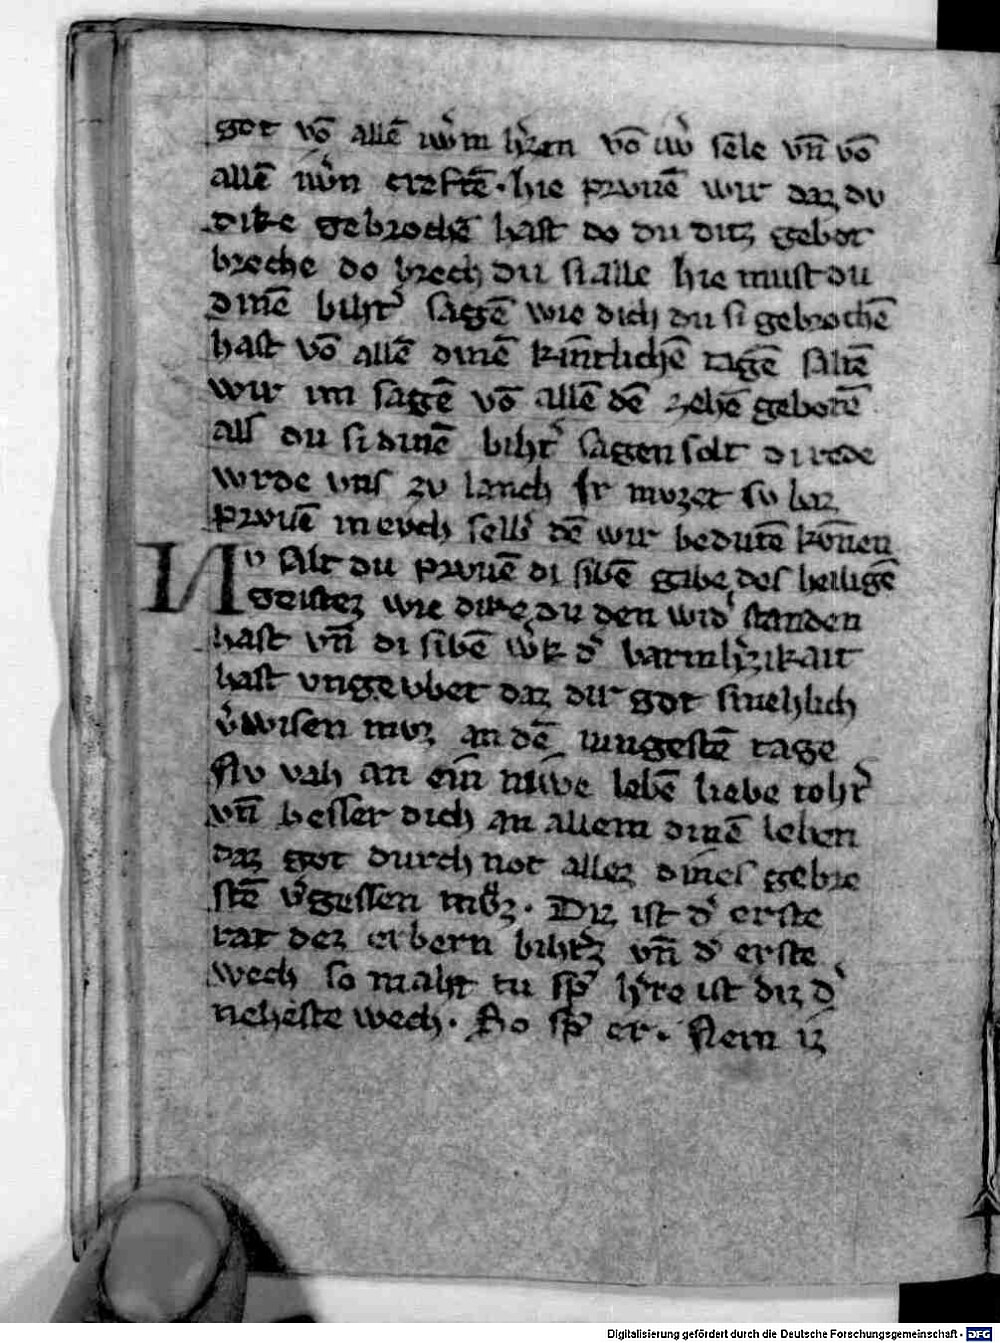 got vō allē iw͛m h͛zen vō iw͛ sele vn̄ vō
allē iw͛n creftē · hie prvuē wir daz dv
dike gebrochē hast do du ditz gebot
breche do brech du si alle hie must du
dinē biht͛ sagē wie dich du si gebrochē
hast vō allē dinē kin̄tlichē tagē saltē
wir im sagē vō allē dē zehē gebotē
als du si dinē biht͛ sagen solt di rede
wrde vns zv lanch Ir mvzet sv baz
prvuē in evch selb͛ dē wir bedutē kōnen
Nv salt du prvuē di sibē gabe des heiligē
geistez wie dike du den wid͛ standen
hast vn̄ di sibē w͛k d͛ barmh͛zikait
hast vngevbet daz dir got
v͛wisen mvz an dē iungestē tage
Nv vah an ein niwe lebē liebe toht͛
vn̄ besser dich an allem dinē leben
daz got durch not allez dines gebre
stē v͛gessen mvz · Diz ist d͛ erste
rat dez erbern biht͛z vn̄ d͛ erste
wech so maht tu sp͛ h͛re ist diz d͛
neheste wech · Do sp͛ er · Nein iz
Digitalisierung gefördert durch die Deutsche Forschungsgemeinschaft - DFG